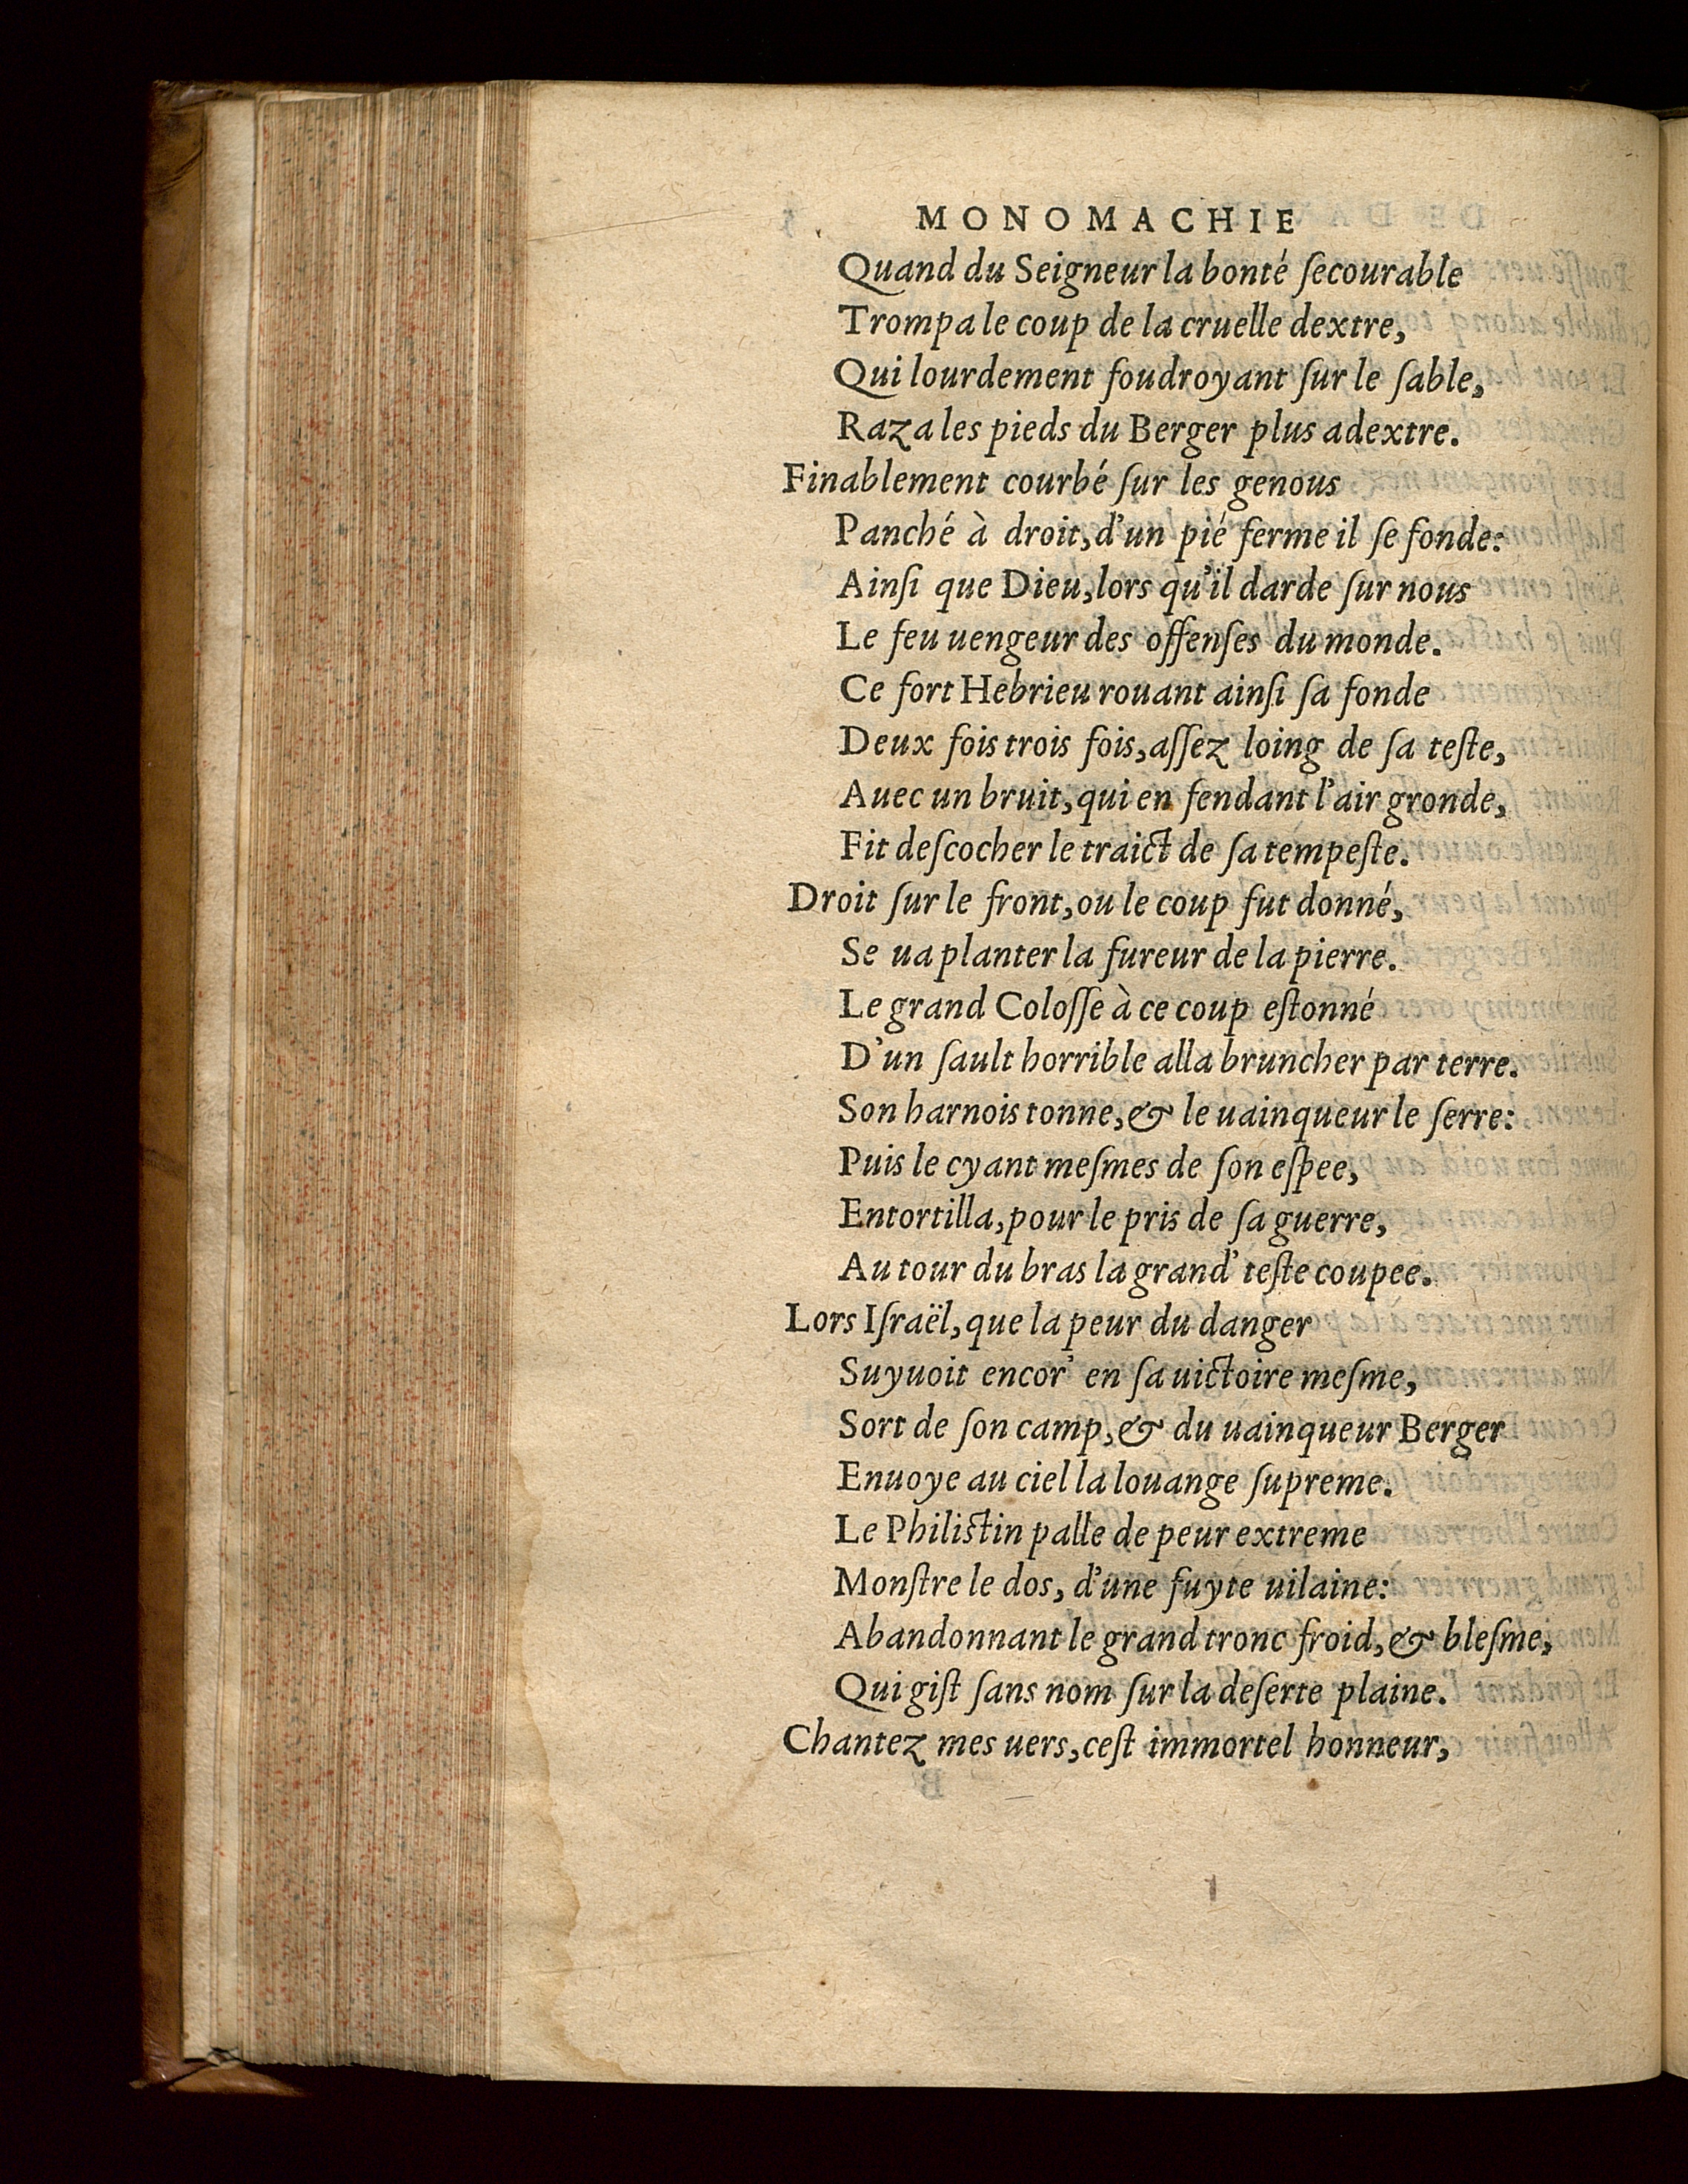 MONOMACHIE
Quand du Seigneur la bonté ſecourable
Trompa le coup de la cruelle dextre,
Qui lourdement foudroyant ſur le ſable,
Raza les pieds du Berger plus adextre.
Finablement courbé ſur les genous
Panché à droit, d'un pié ferme il ſe fonde:
Ainſi que Dieu, lors qu'il darde ſur nous
Le feu uengeur des offenſes du monde.
Ce fort Hebrieu rouant ainſi ſa fonde
Deux fois trois fois, aſſez loing de ſa teſte,
Auec un bruit, qui en fendant l'air gronde,
Fit deſcocher le traict de ſa tempeſte.
Droit ſur le front, ou le coup fut donné,
Se ua planter la fureur de la pierre.
Le grand Coloſſe à ce coup eſtonné
D'un ſault horrible alla bruncher par terre.
Son harnois tonne, & le uainqueur le ſerre:
Puis le cyant meſmes de ſon eſpee,
Entortilla, pour le pris de ſa guerre,
Au tour du bras la grand' teſte coupee.
Lors Iſraël, que la peur du danger
Suyuoit encor' en ſa uictoire meſme,
Sort de ſon camp, & du uainqueur Berger
Enuoye au ciel la louange ſupreme.
Le Philistin palle de peur extreme
Monſtre le dos, d'une fuyte uilaine:
Abandonnant le grand tronc froid, & bleſme,
Qui giſt ſans nom ſur la deſerte plaine.
Chantez mes uers, ceſt immortel honneur,